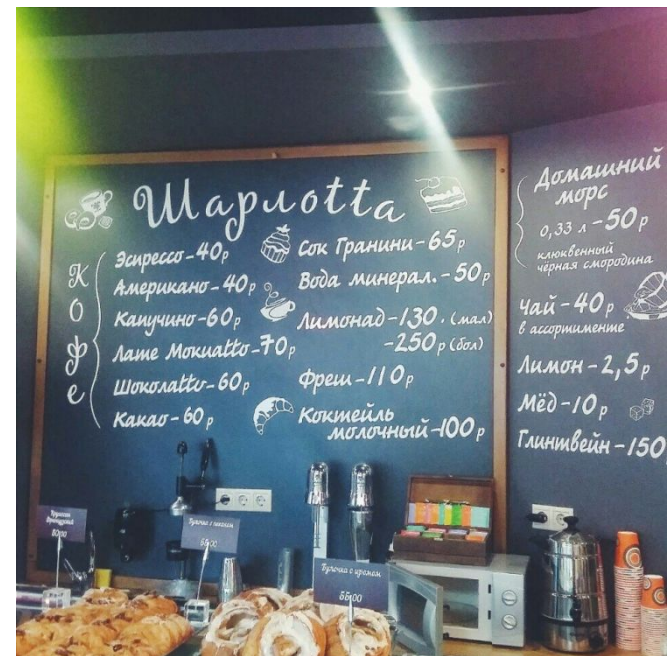 Шарлоtta
Кофе
Эспрессо-40р
Американо-40р
Капучино-60р
Лате Мокиаtto-70р
Шоколаtto-60р
Какао-60р
Сок Гранини-65р
Вода минерал.-50р
Лимонад-130.(мал)
-250р(бол)
Фреш-110р
Коктейль
молочный-100р
Домашний
морс
0,33 л-50р
клюквенный
чёрная смородина
Чай-40р
в ассортименте
Лимон-2,5р
Мёд-10р
Глинтвейн-150
Булочка с
Булочка с кремом
55.00